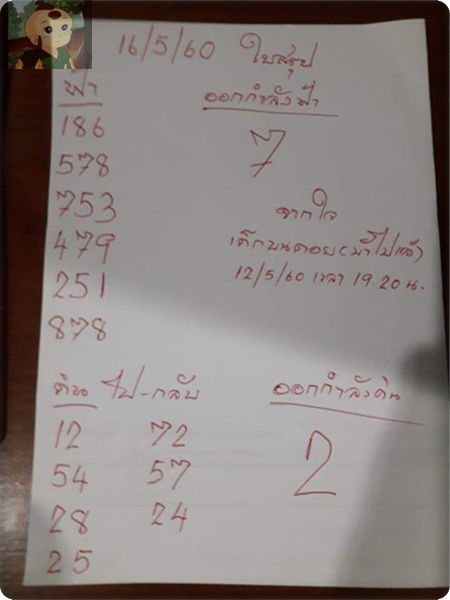 16/5/60 ใบสรุป
ฟ้า
ออกกำลังฟ้า
186
7
578
753
จากใจ
479
เด็กบนดอย
251
12/5/60 เวลา 19.20 น.
878
ดิน ไป-กลับ
ออกกำลังดิน
12 72
2
54 57
28 24
25